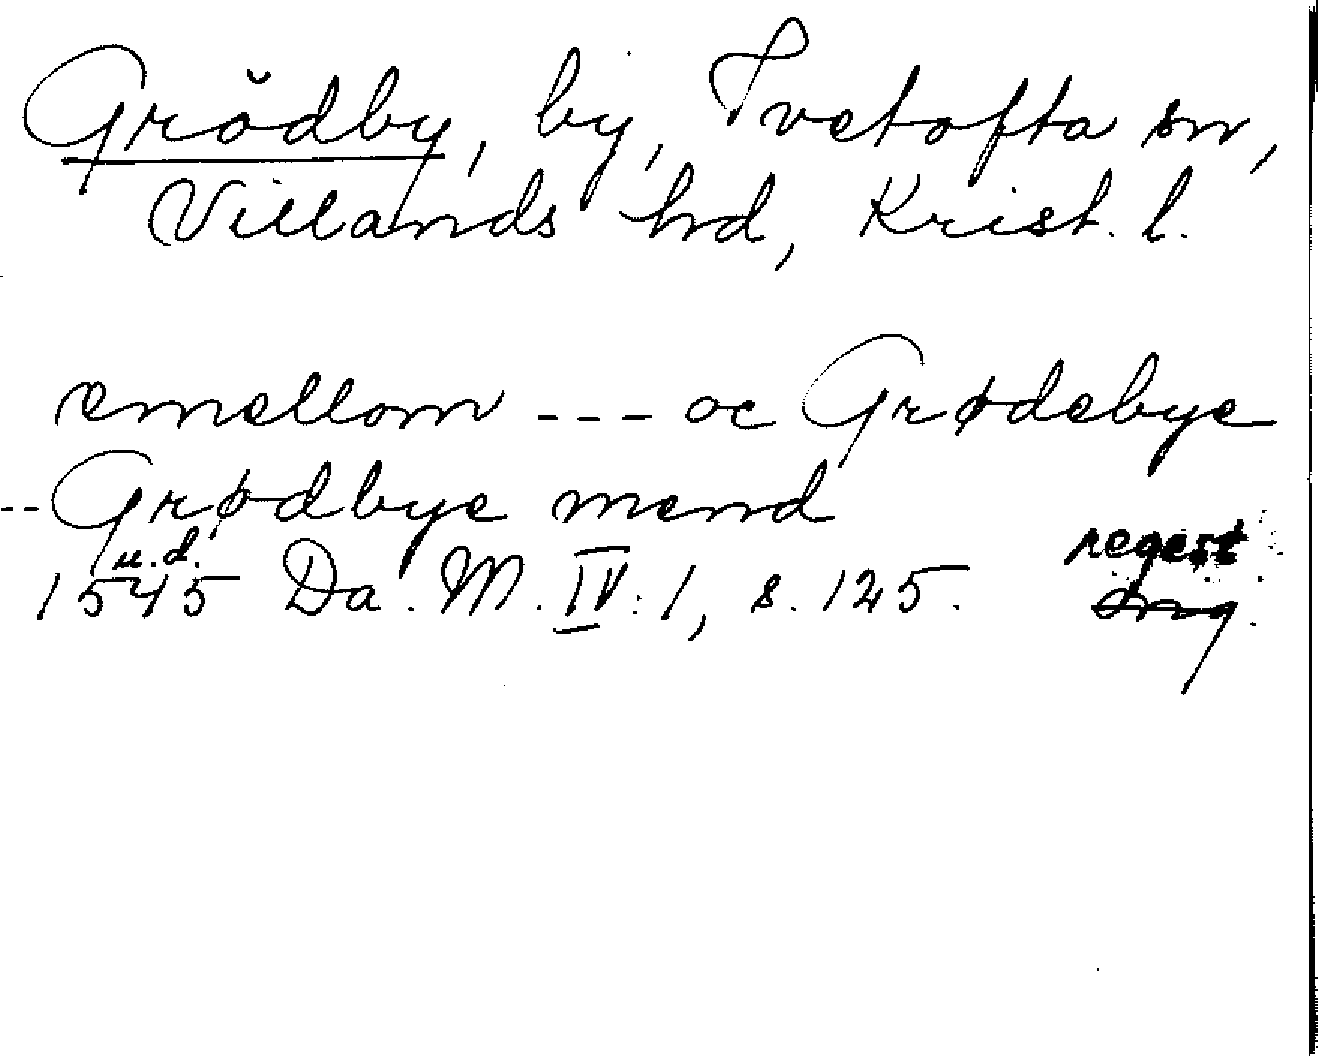 Grödby, by, Tvetofta sn,
Villands hd, Krist. l.
emellom --- oc Grødebye
-- Grødbye mend
u.d.
1545 Da. M. IV: 1, s. 125.
regest